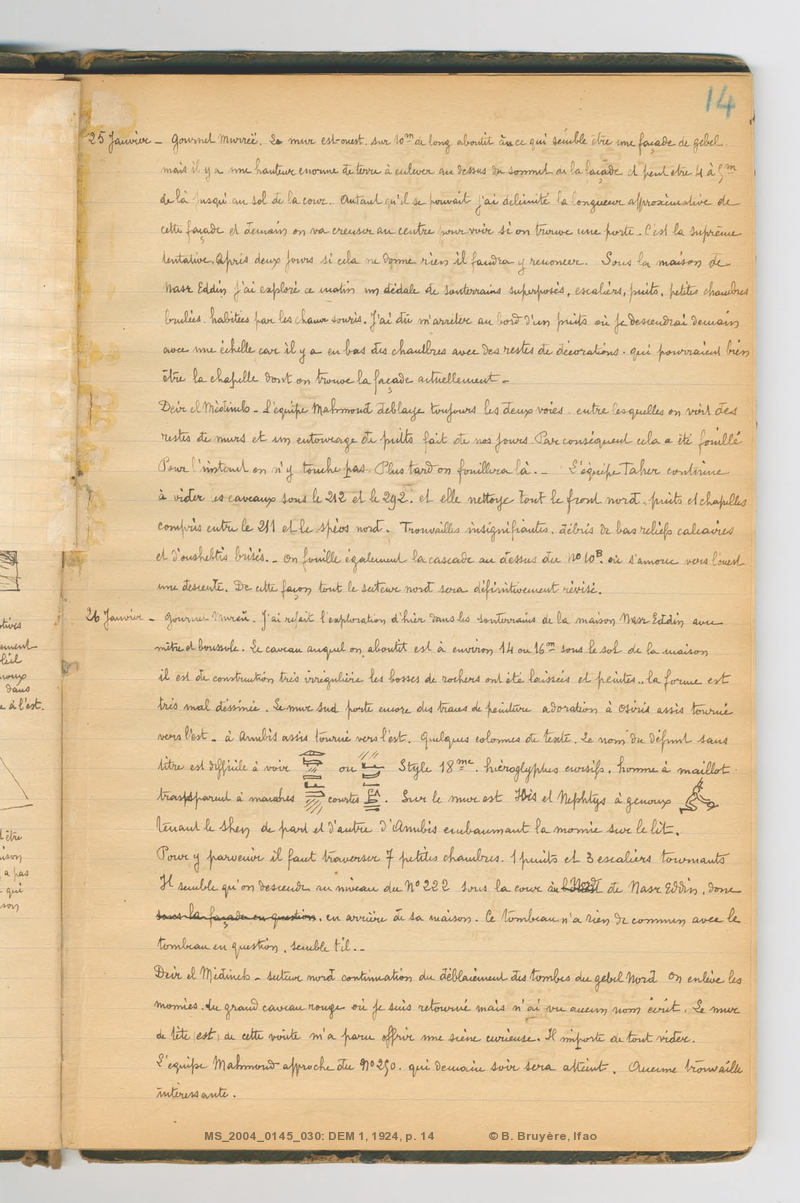 14
25 Janvier – Gournet Murreï. Le mur est-ouest sur 10m de long aboutit à ce qui semble être une façade de gebel
mais il y a une hauteur enorme de terre à enlever au dessus du sommet de la façade et peut etre 4 à 5m
de là jusqu'au sol de la cour. Autant qu'il se pouvait j'ai délimité la longueur approximative de
cette façade et demain on va creuser au centre pour voir si on trouve une porte. C'est la suprême
tentative. Après deux jours si cela ne donne rien il faudra y renoncer. Sous la maison de
Nasr Eddin j'ai exploré ce matin un dédale de souterrains superposés, escaliers, puits, petites chambres
brulées habitées par les chauve souris. J'ai dû m'arrêter au bord d'un puits où je descendrai demain
avec une échelle car il y a en bas des chambres avec des restes de décorations qui pourraient bien
être la chapelle dont on trouve la façade actuellement –
Deir el Médineh – L'équipe Mahmoud déblaye toujours les deux voies entre lesquelles on voit des
restes de murs et un entourage de puits fait de nos jours. Par conséquent cela a été fouillé
Pour l'instant on n'y touche pas. Plus tard on fouillera là. – L'équipe Taher continue
à vider les caveaux sous le 212 et le 292. et elle nettoye tout le front nord. puits et chapelles
compris entre le 211 et le spéos nord. Trouvailles insignifiantes. débris de bas reliefs calcaires
et d'oushebtis brisés. – On fouille également la cascade au dessus du No 10B. où s'amorce vers l'ouest
une descente. De cette façon tout le secteur nord sera définitivement révisé.
26 Janvier – Gournet Murreï. J'ai refait l'exploration d'hier dans les souterrains de la maison Nasr Eddin avec
mètre et boussole. Le caveau auquel on aboutit est à environ 14 ou 16m sous le sol de la maison
il est de construction très irrégulière les bosses de rochers ont été laissées et peintes.. la forme est
très mal dessinée. Le mur sud porte encore des traces de peinture adoration à Osiris assis tourné
vers l'est – à Anubis assis tourné vers l'est. Quelques colonnes de texte. Le nom du défunt sans
titre est difficile à voir ou Style 18me. hiéroglyphes cursifs, homme à maillot
transparent à manches courtes. Sur le mur est Isis et Nephtys à genoux
tenant le shen de part et d'autre d'Anubis embaumant la momie sur le lit.
Pour y parvenir il faut traverser 7 petites chambres. 1 puits et 3 escaliers tournants
Il semble qu'on descende au niveau du No 222 sous la cour de Nasr Eddin, donc
sous la façade en question. en arrière de sa maison. Ce tombeau n'a rien de commun avec le
tombeau en question, semble t'il. –
Deir el Médineh – secteur nord continuation du déblaiement des tombes du gebel Nord On enlève les
momies du grand caveau rouge où je suis retourné mais n'ai vu aucun nom écrit. Le mur
de tête (est) de cette voute m'a paru offrir une scène curieuse. Il importe de tout vider.
L'equipe Mahmoud approche du No 250. qui demain soir sera atteint. Aucune trouvaille
intéressante.
MS_2004_0145_030: DEM 1, 1924, p. 14 © B. Bruyère, Ifao